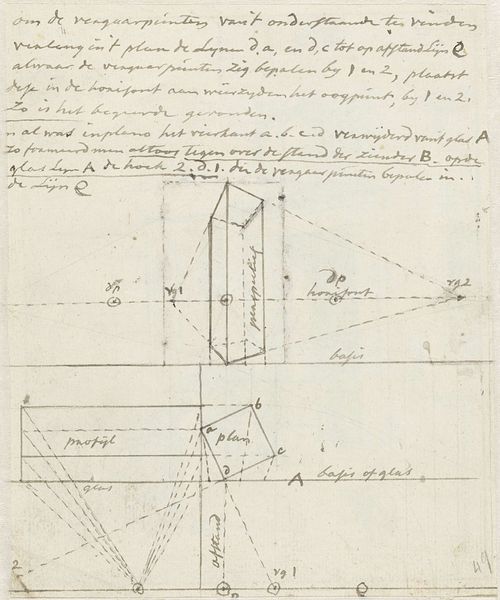 om de verguarpunten van't onderstaande te vinden
verleng in't plan de Lijnen d,a, en d,c tot op afstand Lijn e
alwaar de verguarpunten zig bepalen by 1 en 2, plaatst
deze in de horifont aan weerzyden het oogpunt, by 1 en 2.
Zo is het begeerde gevonden.
al was in plano het vierkant a.b.c.d verwyderd van't glas A
zo formeerd men altoos tegen over de stand der ziender B. op de
glas Lyn A de hoek 2.d.1. die de verguarpunten bepalen in
de Lijn e
perspectief
dp
vg1
dp
horifont
vg2
basis
profyl
a
b
plan
c
d
basis of glas
A
glas
afstand
2
vg1
49